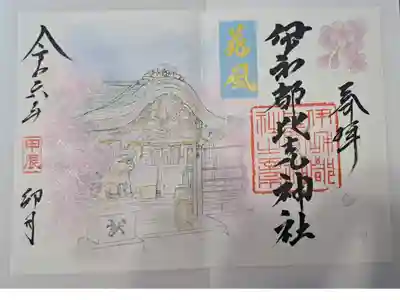 奉拝
伊和都比売神社
花風
令和六年
甲辰
卯月